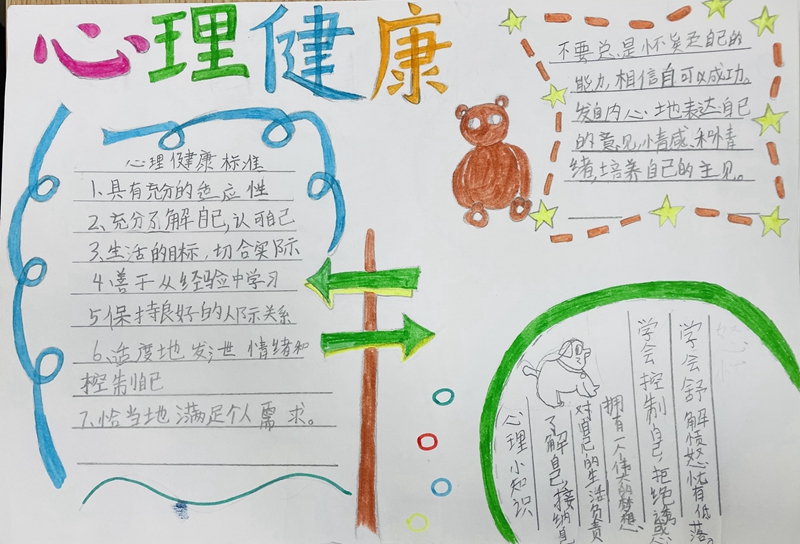 心理健康
心理健康标准
1、具有充分的适应性
2、充分了解自己,认可自己
3、生活的目标,切合实际
4善于从经验中学习
5保持良好的人际关系
6、适度地发泄情绪和
控制自己
7、恰当地满足个人需求。
不要总是怀疑自己的
能力,相信自可以成功。
发自内心地表达自己
的意见,情感,和情
绪,培养自己的主见。
心理小知识
了解自己,接纳自
对自己的生活负责
拥有一人伟大的梦想、
学会控制自己,拒绝诱惑
学会舒解愤怒忧有低落。